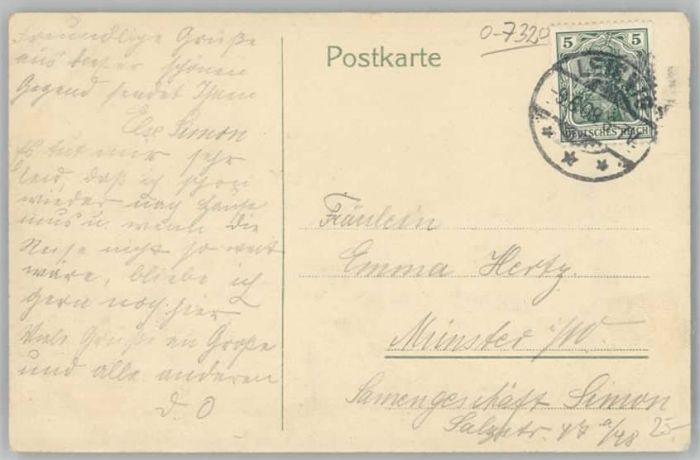 Freundliche Grüße
aus dieser schönen
Gegend sendet Ihnen
Else Simon
Es tut mir sehr
leid, daß ich schon
wieder nach Hause
muss u. wenn die
Reise nicht so weit
wäre, bliebe ich
gern noch hier
Viele Grüße an Große
und alle anderen
d. O
Postkarte
0-7320
5 5
DEUTSCHES REICH
Fräulein
Emma Hertz.
Münster i/W.
Samengeschäft Simon
Salzstr.
25-